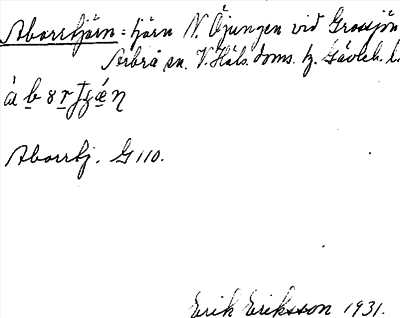 Aborrtjärn = tjärn N. Öjungen vid Grossjön
Järbrå sn. V. Häls. doms. hz. Gävleb. l.
Aborrtj. G 110.
Erik Eriksson 1931.